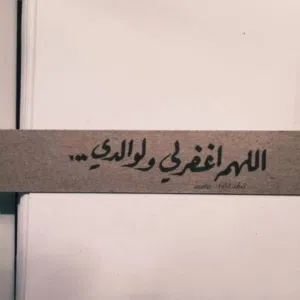 اللهم اغفرلي ولوالدي ...